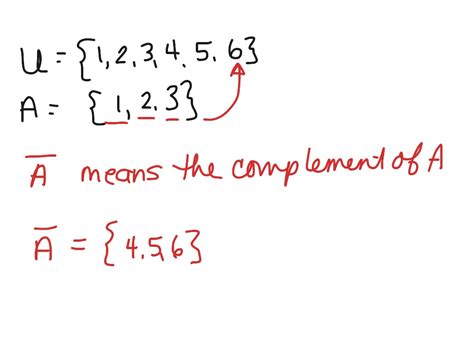 U = {1,2,3,4,5,6}
A = {1,2,3}
A̅ means the complement of A
A̅ = {4,5,6}